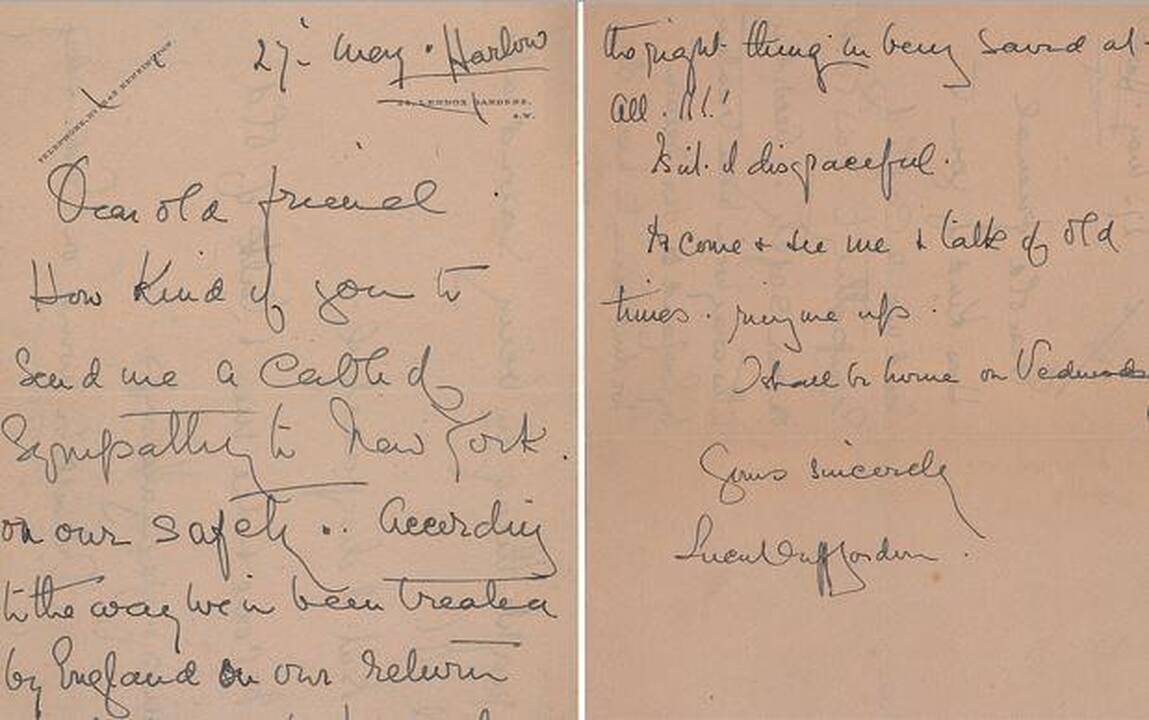 27 - May . Harlow
TELEPHONE KENSINGTON.
LENNOX GARDENS,
S.W.
Dear old friend
How Kind of you to
Send me a Cable of
Sympathy to New York.
on our safety .. According
to the way we've been treated
by England on our return
the right thing in being saved at-
all . !!!!
Isn't it disgraceful.
to come & see me & talk of old
times . ring me up .
I shall be home on Wednesday
Yours sincerely
Lucile Duff Gordon .